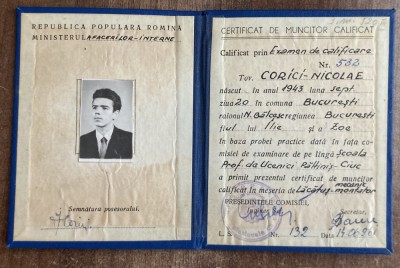 REPUBLICA POPULARA ROMÎNA
MINISTERUL AFACERILOR-INTERNE
Semnătura posesorului,
CERTIFICAT DE MUNCITOR CALIFICAT
Calificat prin Examen de calificare
Nr. 532
Tov. CORICI-NICOLAE
născut în anul 1943 luna sept.
ziua 20 în comuna București
raionul N. Bălcescu regiunea București
fiul lui Ilie și a Zoe
în baza probei practice dată în fața co-
misiei de examinare de pe lîngă școala
Prof. de Ucenici
Ciuc
a primit prezentul certificat de muncitor
calificat în meseria de Lăcătuș mecanic
montator
PREȘEDINTELE COMISIEI,
Secretar,
L. S. Nr. 132 Data